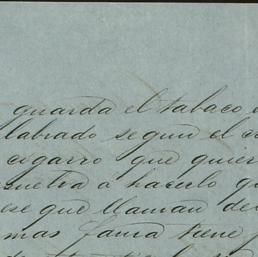 guarda el tabaco
labrado segun el
cigarro que quier
a hacerlo
ese que llaman de
mas fama tiene